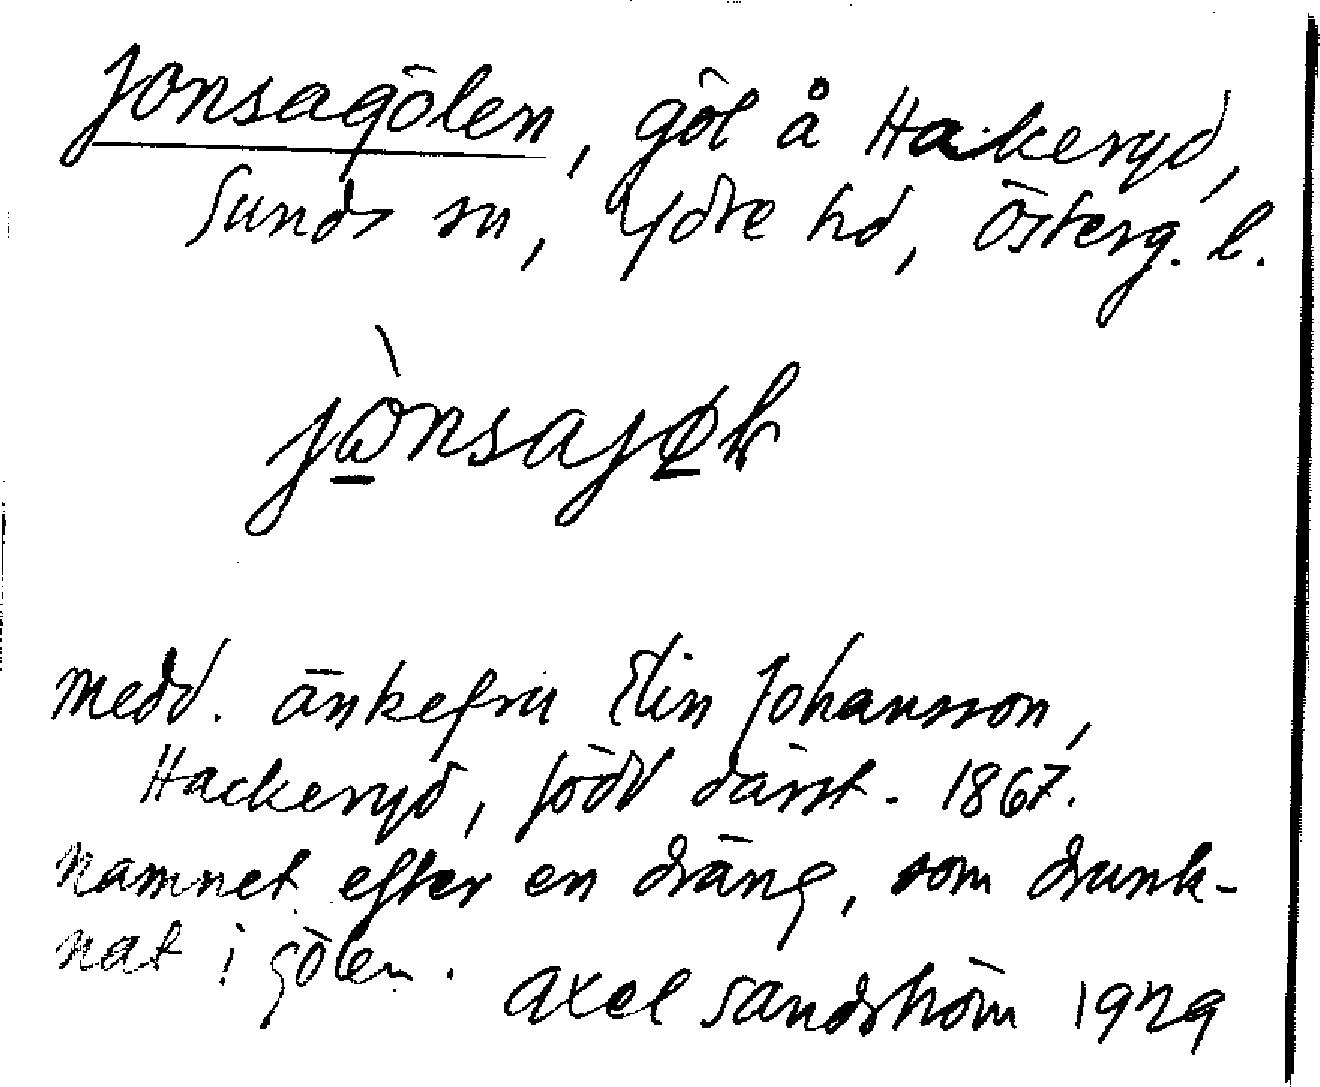 Jonsagölen, göl å Hakeryd,
Sunds sn, Ydre hd, Österg. l.
medd. änkefru Elin Johansson,
Hackeryd, född därst. 1867.
namnet efter en dräng, som drunk-
nat i gölen.
Axel Sandström 1929